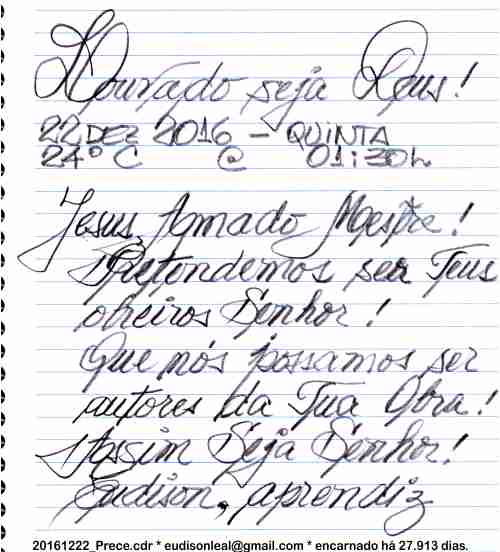 Louvado seja Deus!
22 DEZ 2016 - QUINTA
24° C @ 01:30h
Jesus, Amado Mestre!
Pretendemos ser Teus
obreiros Senhor!
Que nós possamos ser
autores da Tua Obra!
Assim Seja Senhor!
Eudison, aprendiz
20161222_Prece.cdr * eudisonleal@gmail.com * encarnado há 27.913 dias.